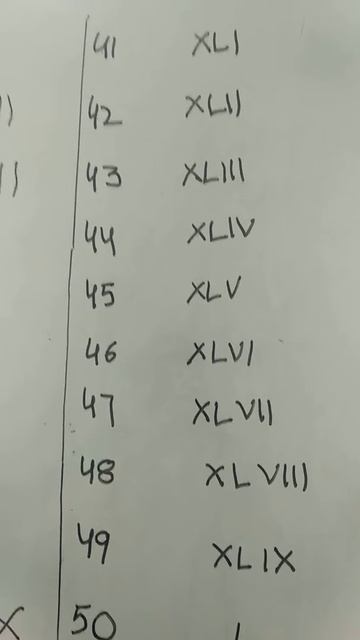 41 XLI
42 XLII
43 XLIII
44 XLIV
45 XLV
46 XLVI
47 XLVII
48 XLVIII
49 XLIX
50